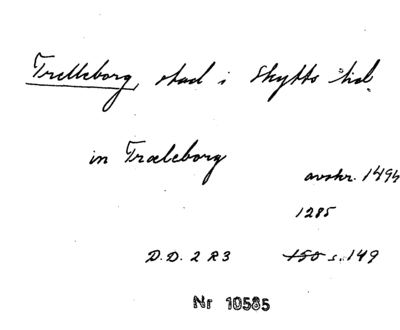 Trelleborg, stad i Skytts hd.
in Træleborg
avskr. 1494
1285
D.D. 2 R 3 150 s. 149
Nr 10585